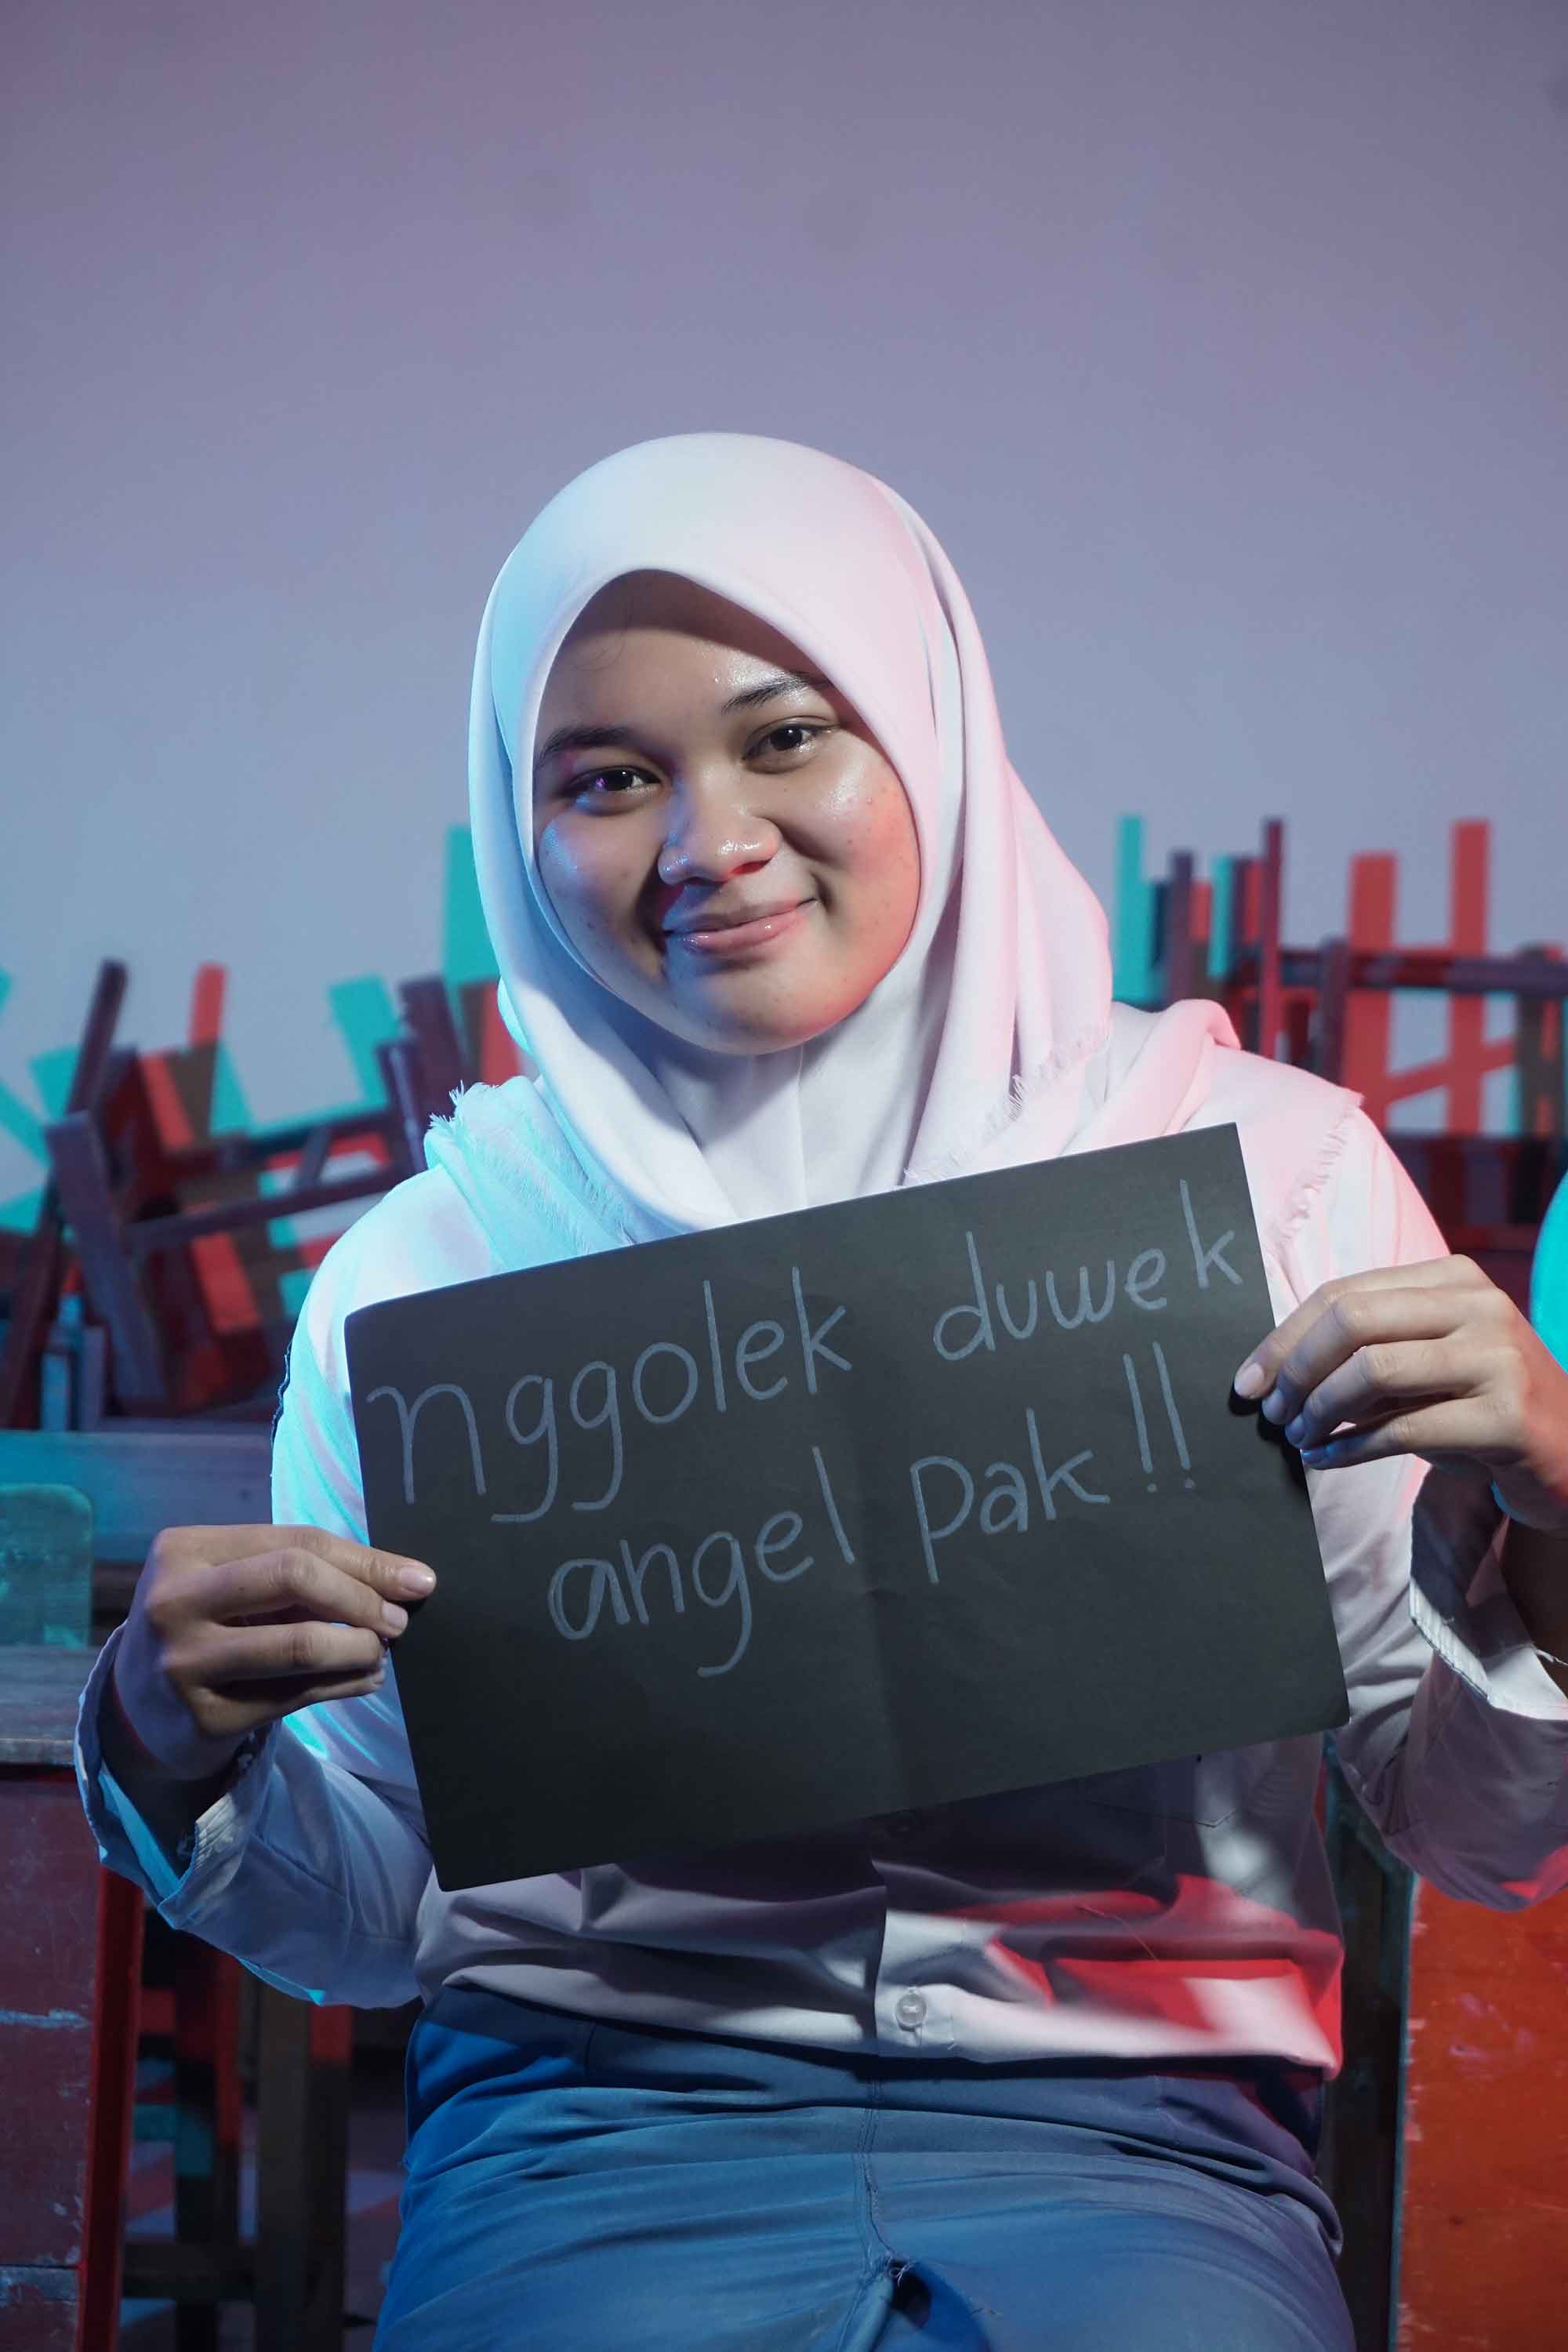 nggolek duwek
angel pak!!